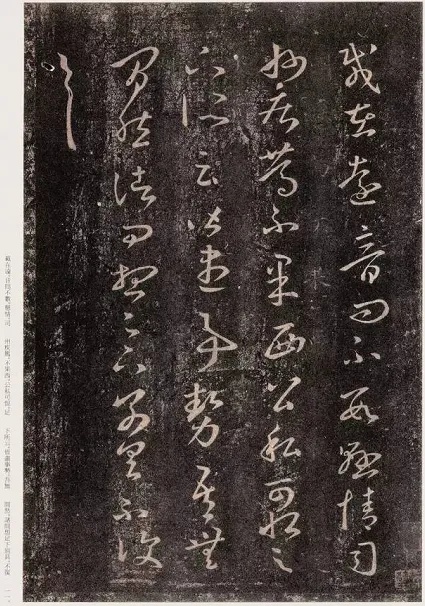 載在遠音問不數懸情司
州疾篤不果西公私可恨足
下所云皆盡事勢吾無
間然諸問想足下別具不復
一一
載在遠,音問不數,懸情。司
州疾篤,不果西,公私可恨。足
下所云,皆盡事勢,吾無
間然。諸問想足下別具,不復